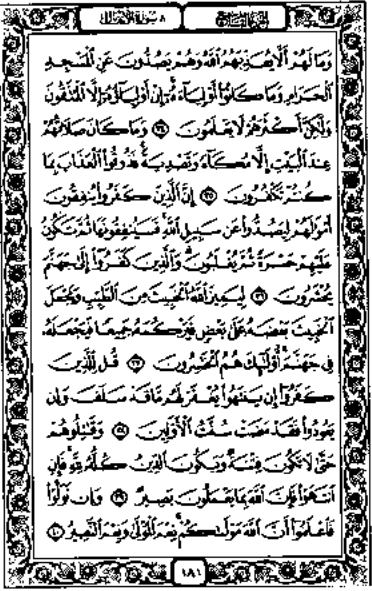 الجزء التاسع
٨ سورة الأنفال
وَمَا لَهُمْ أَلَّا يُعَذِّبَهُمُ ٱللَّهُ وَهُمْ يَصُدُّونَ عَنِ ٱلْمَسْجِدِ
ٱلْحَرَامِ وَمَا كَانُوٓا۟ أَوْلِيَآءَهُۥٓ ۚ إِنْ أَوْلِيَآؤُهُۥٓ إِلَّا ٱلْمُتَّقُونَ
وَلَٰكِنَّ أَكْثَرَهُمْ لَا يَعْلَمُونَ ٣٤ وَمَا كَانَ صَلَاتُهُمْ
عِندَ ٱلْبَيْتِ إِلَّا مُكَآءً وَتَصْدِيَةً ۚ فَذُوقُوا۟ ٱلْعَذَابَ بِمَا
كُنتُمْ تَكْفُرُونَ ٣٥ إِنَّ ٱلَّذِينَ كَفَرُوا۟ يُنفِقُونَ
أَمْوَٰلَهُمْ لِيَصُدُّوا۟ عَن سَبِيلِ ٱللَّهِ ۚ فَسَيُنفِقُونَهَا ثُمَّ تَكُونُ
عَلَيْهِمْ حَسْرَةً ثُمَّ يُغْلَبُونَ ۗ وَٱلَّذِينَ كَفَرُوٓا۟ إِلَىٰ جَهَنَّمَ
يُحْشَرُونَ ٣٦ لِيَمِيزَ ٱللَّهُ ٱلْخَبِيثَ مِنَ ٱلطَّيِّبِ وَيَجْعَلَ
ٱلْخَبِيثَ بَعْضَهُۥ عَلَىٰ بَعْضٍ فَيَرْكُمَهُۥ جَمِيعًا فَيَجْعَلَهُۥ
فِى جَهَنَّمَ ۚ أُو۟لَٰٓئِكَ هُمُ ٱلْخَٰسِرُونَ ٣٧ قُل لِّلَّذِينَ
كَفَرُوٓا۟ إِن يَنتَهُوا۟ يُغْفَرْ لَهُم مَّا قَدْ سَلَفَ وَإِن
يَعُودُوا۟ فَقَدْ مَضَتْ سُنَّتُ ٱلْأَوَّلِينَ ٣٨ وَقَٰتِلُوهُمْ
حَتَّىٰ لَا تَكُونَ فِتْنَةٌ وَيَكُونَ ٱلدِّينُ كُلُّهُۥ لِلَّهِ ۚ فَإِنِ
ٱنتَهَوْا۟ فَإِنَّ ٱللَّهَ بِمَا يَعْمَلُونَ بَصِيرٌ ٣٩ وَإِن تَوَلَّوْا۟
فَٱعْلَمُوٓا۟ أَنَّ ٱللَّهَ مَوْلَىٰكُمْ ۚ نِعْمَ ٱلْمَوْلَىٰ وَنِعْمَ ٱلنَّصِيرُ ٤٠
١٨١